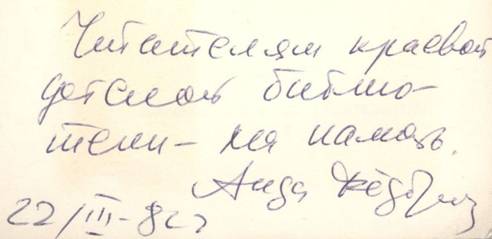 Читателям краевой
детской библио-
теки – на память.
Аида Фёдорова
22/III-82г